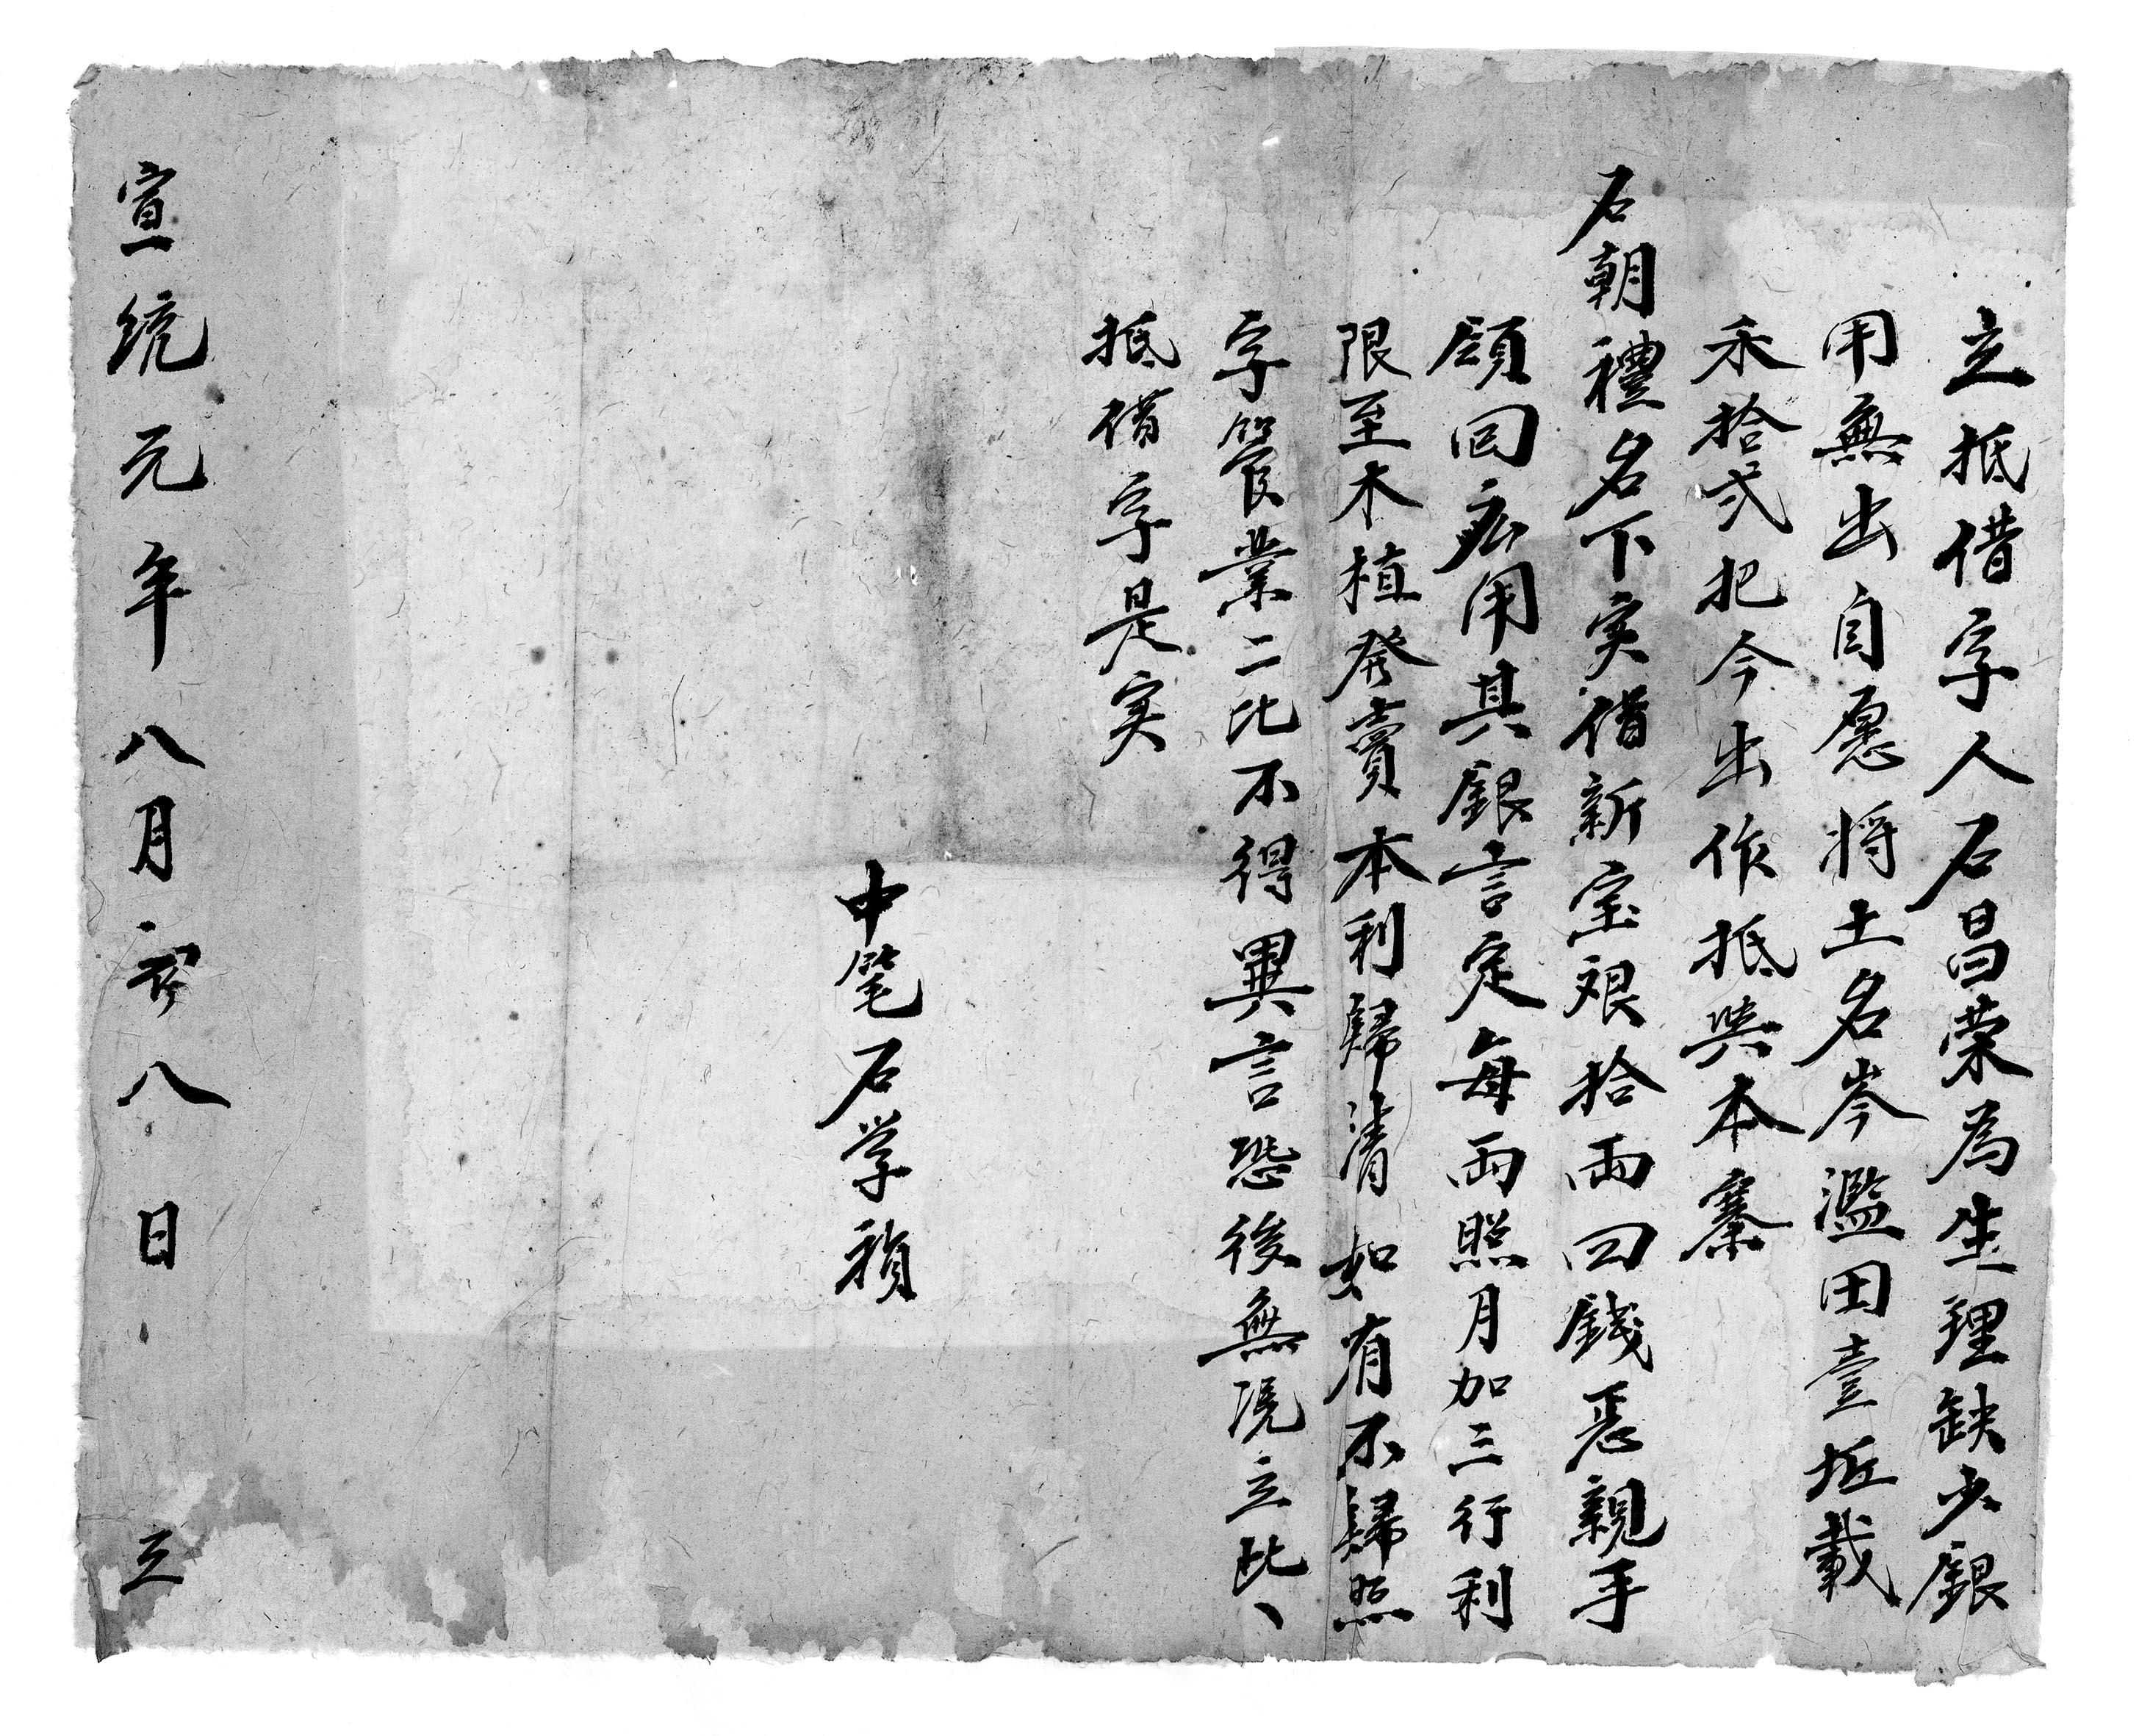 立抵借字人石昌荣為生理缺少銀
用無出自愿将土名岑濫田壹坵載
禾拾弍把今出作抵與本寨
石朝禮名下实借新宝艮拾両四錢悉親手
領回应用其銀言定每両照月加三行利
限至木植発賣本利歸清如有不歸照
字管業二比不得異言恐後無凴立此丶
抵借字是实
中笔石学祯
宣統元年八月初八日立